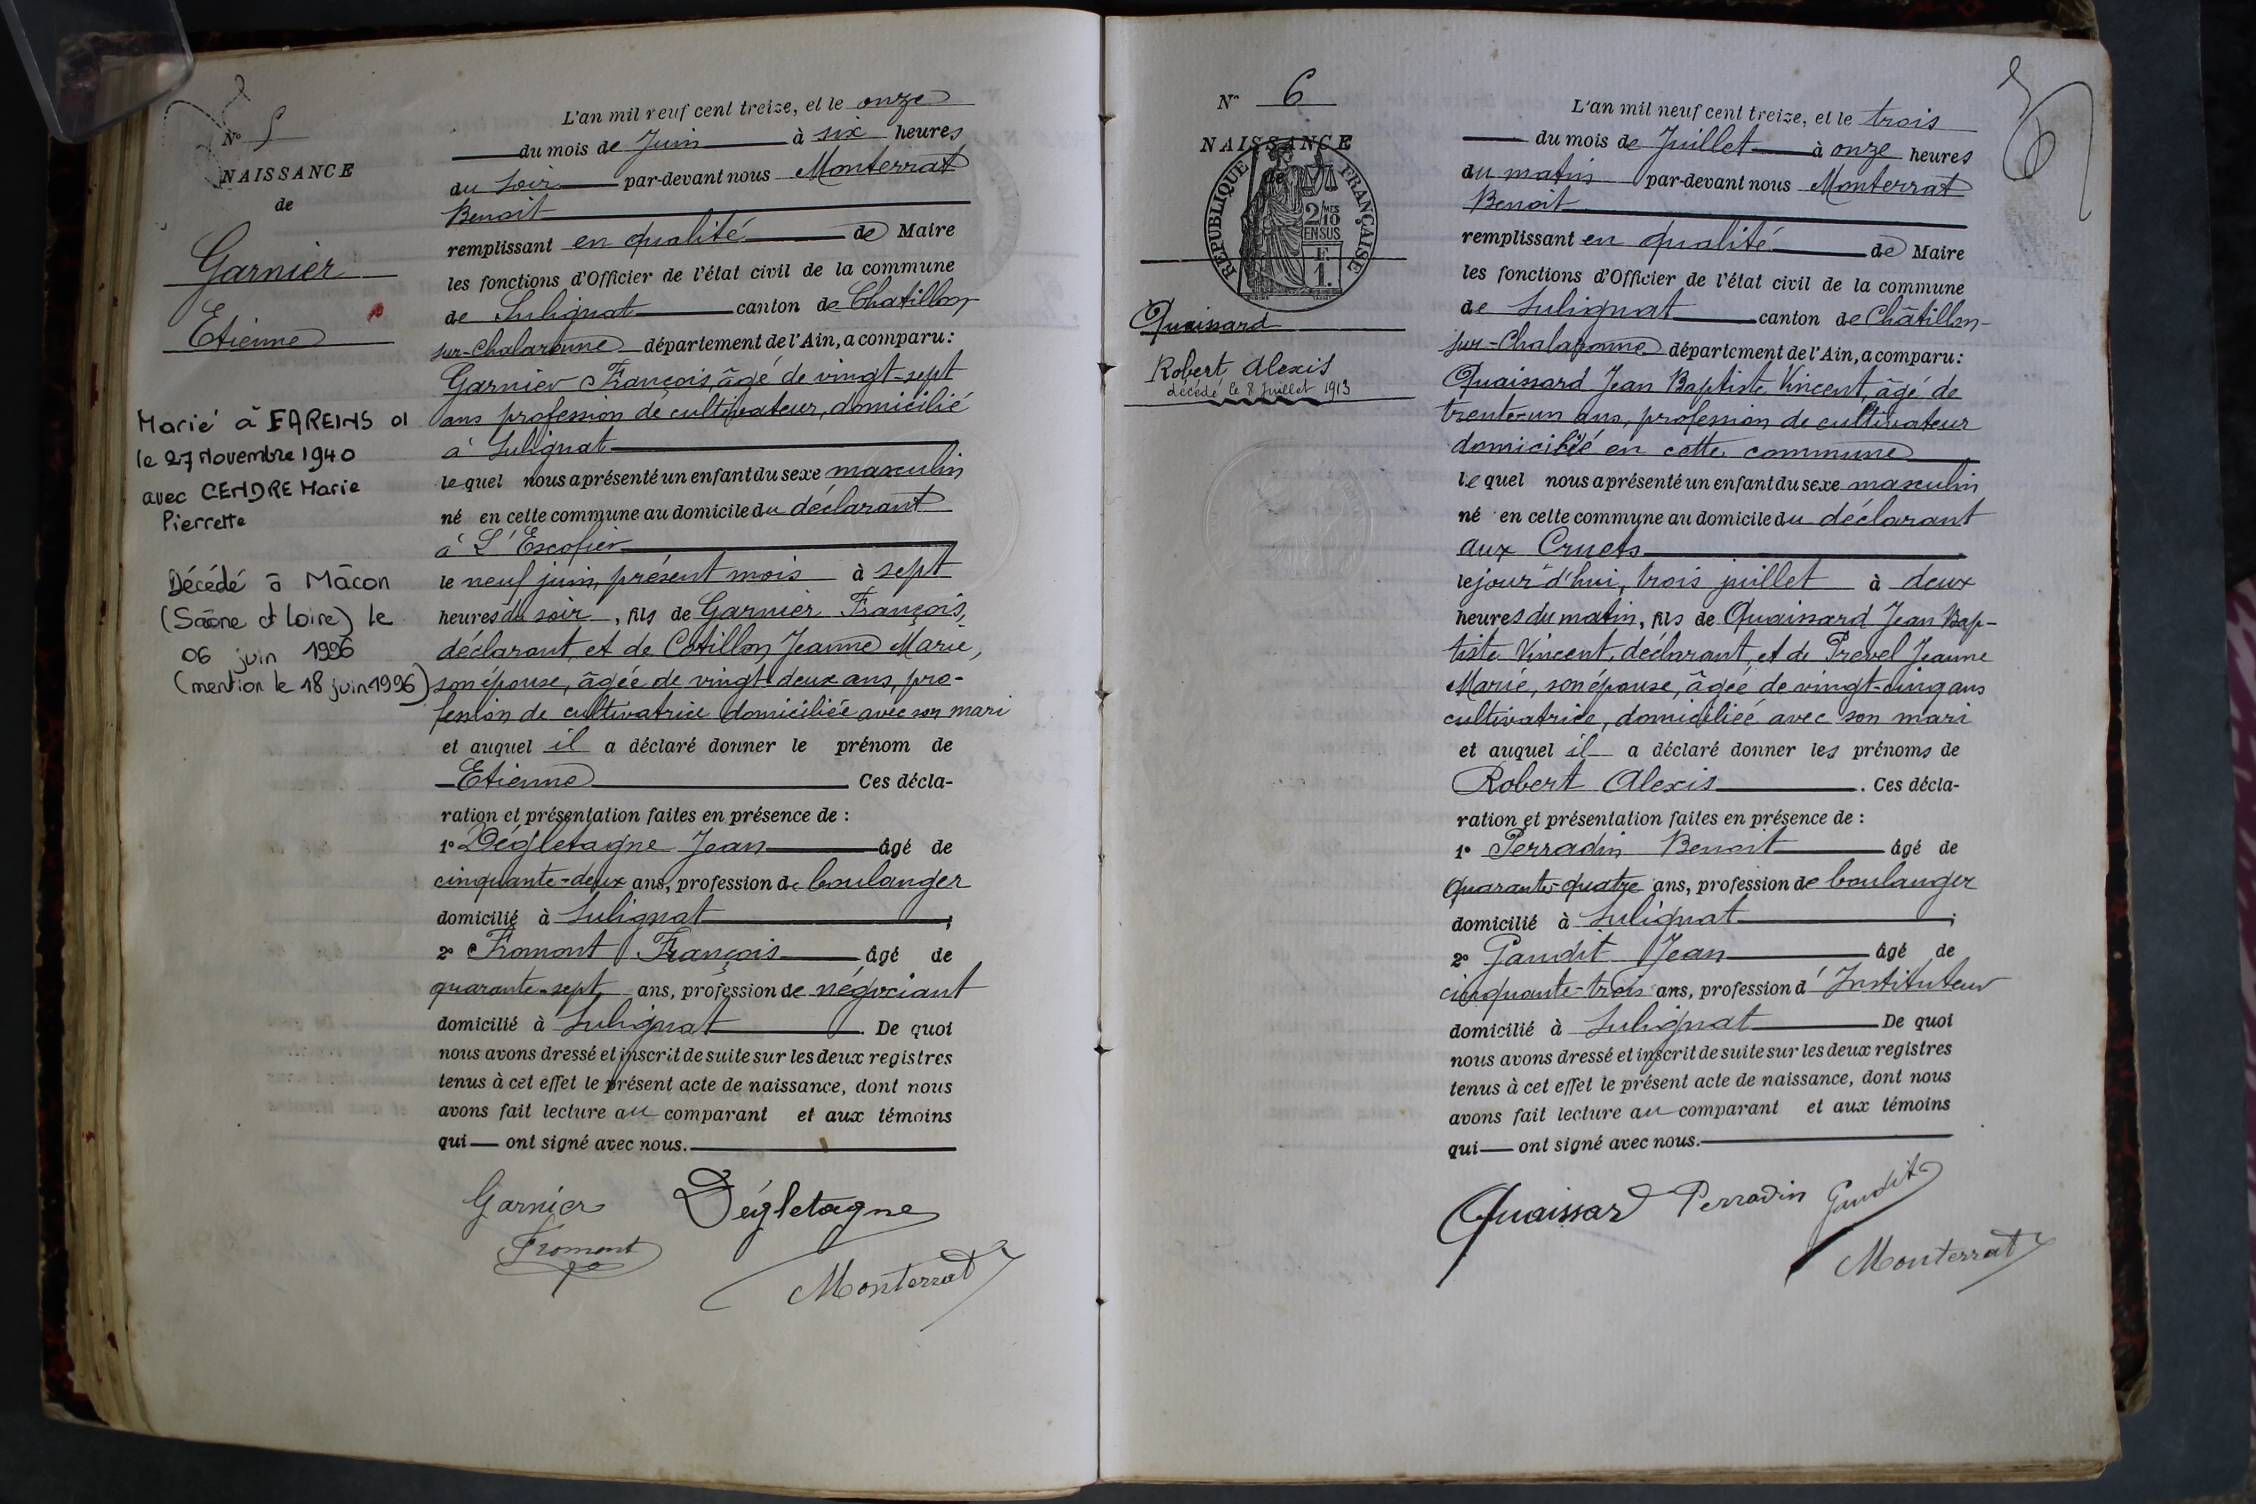 N° 5
NAISSANCE
de
Garnier
Etienne
Marié à FAREINS 01
le 27 Novembre 1940
avec CENDRE Marie
Pierrette
Décédé à Mâcon
(Saône et Loire) le
06 juin 1996
(mention le 18 juin 1996)
L'an mil neuf cent treize, et le onze
du mois de Juin à six heures
du soir par-devant nous Monterrat
Benoit
remplissant en qualité de Maire
les fonctions d'Officier de l'état civil de la commune
de Sulignat canton de Chatillon
sur-Chalaronne département de l'Ain, a comparu :
Garnier François, âgé de vingt-sept
ans profession de cultivateur, domicilié
à Sulignat
lequel nous a présenté un enfant du sexe masculin
né en cette commune au domicile du déclarant
à L'Escofier
le neuf juin, présent mois à sept
heures du soir, fils de Garnier François,
déclarant, et de Cotillon Jeanne Marie,
son épouse, âgée de vingt-deux ans, pro-
fession de cultivatrice domiciliée avec son mari
et auquel il a déclaré donner le prénom de
Etienne Ces décla-
ration et présentation faites en présence de :
1° Dégletagne Jean âgé de
cinquante-deux ans, profession de boulanger
domicilié à Sulignat ;
2° Fromont François âgé de
quarante-sept ans, profession de négociant
domicilié à Sulignat. De quoi
nous avons dressé et inscrit de suite sur les deux registres
tenus à cet effet le présent acte de naissance, dont nous
avons fait lecture au comparant et aux témoins
qui ont signé avec nous.
Garnier Dégletagne
Fromont
Monterrat
N° 6
NAISSANCE
de
RÉPUBLIQUE FRANÇAISE
2/10 MES
EN SUS
F
1.
Quaissard
Robert Alexis
décédé le 8 Juillet 1913
L'an mil neuf cent treize, et le trois
du mois de Juillet à onze heures
du matin par-devant nous Monterrat
Benoit
remplissant en qualité de Maire
les fonctions d'Officier de l'état civil de la commune
de Sulignat canton de Châtillon-
sur-Chalaronne département de l'Ain, a comparu :
Quaissard Jean Baptiste Vincent, âgé de
trente-un ans, profession de cultivateur
domicilié en cette commune
lequel nous a présenté un enfant du sexe masculin
né en cette commune au domicile du déclarant
aux Cruets
le jour d'hui, trois juillet à deux
heures du matin, fils de Quaissard Jean Bap-
tiste Vincent, déclarant, et de Prevel Jeanne
Marie, son épouse, âgée de vingt-cinq ans
cultivatrice, domiciliée avec son mari
et auquel il a déclaré donner les prénoms de
Robert Alexis. Ces décla-
ration et présentation faites en présence de :
1° Perradin Benoit âgé de
quarante-quatre ans, profession de boulanger
domicilié à Sulignat ;
2° Gaudit Jean âgé de
cinquante-trois ans, profession d'Instituteur
domicilié à Sulignat De quoi
nous avons dressé et inscrit de suite sur les deux registres
tenus à cet effet le présent acte de naissance, dont nous
avons fait lecture au comparant et aux témoins
qui ont signé avec nous.
Quaissard Perradin Gaudit
Monterrat